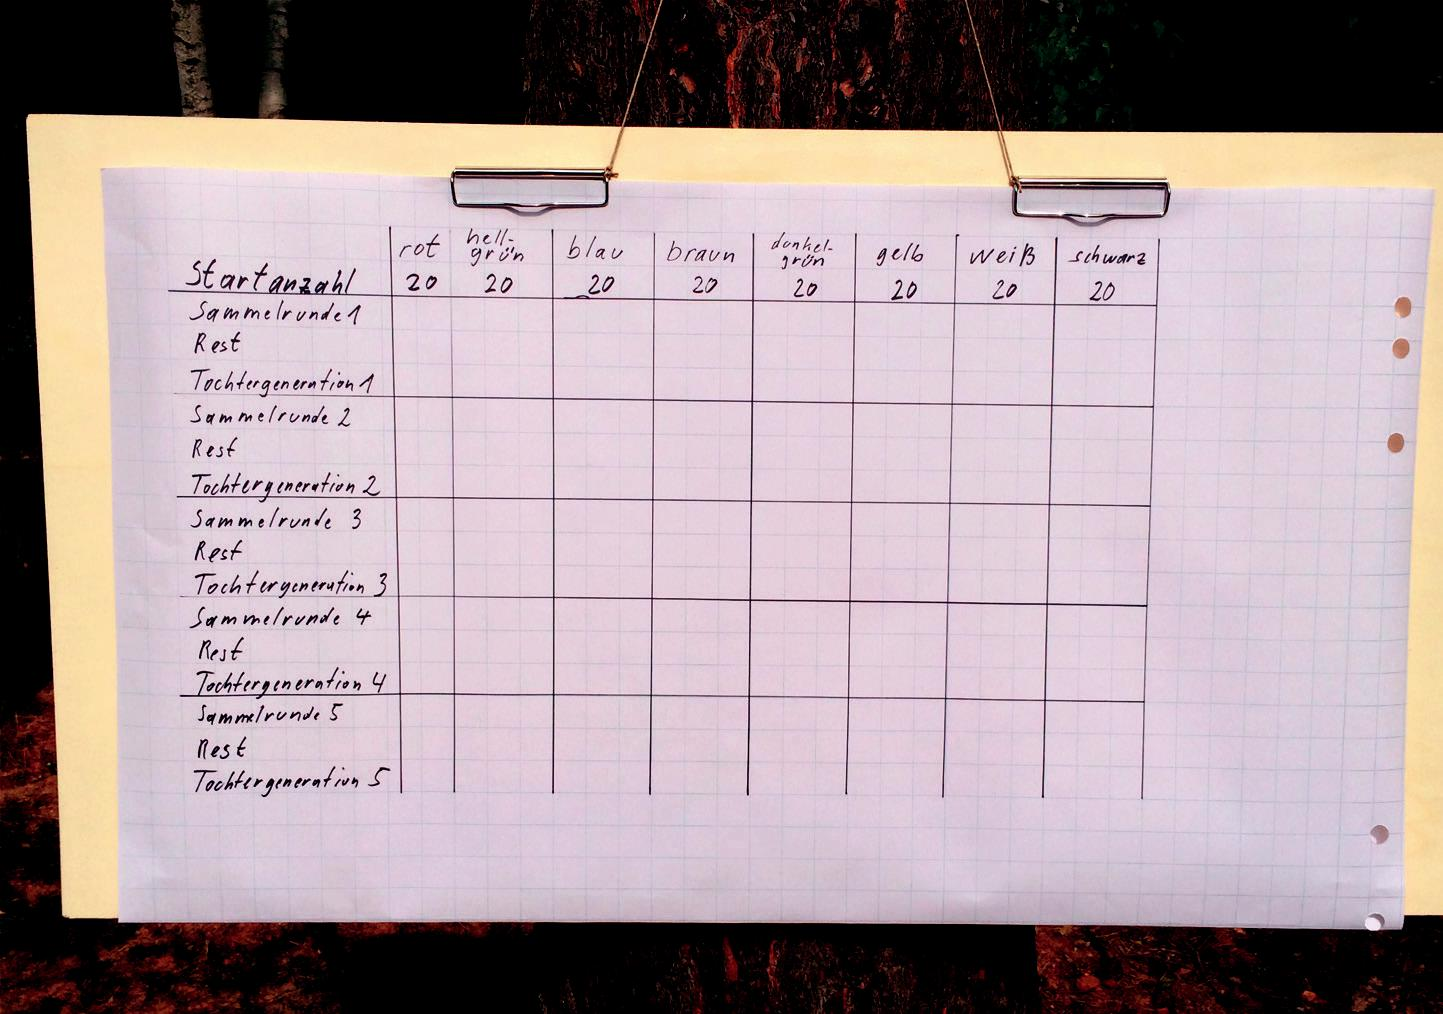 rot hell-grün blau braun dunkel-grün gelb weiß schwarz
Startanzahl 20 20 20 20 20 20 20 20
Sammelrunde 1
Rest
Tochtergeneration 1
Sammelrunde 2
Rest
Tochtergeneration 2
Sammelrunde 3
Rest
Tochtergeneration 3
Sammelrunde 4
Rest
Tochtergeneration 4
Sammelrunde 5
Rest
Tochtergeneration 5